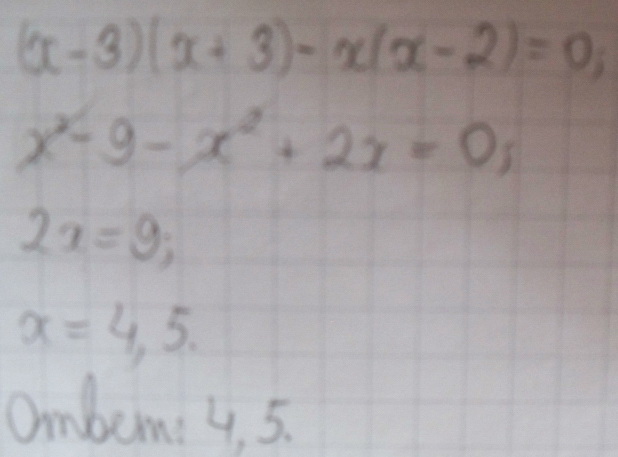 (x-3)(x+3)-x(x-2)=0;
x²-9-x²+2x=0;
2x=9;
x=4,5.
Ответ: 4,5.